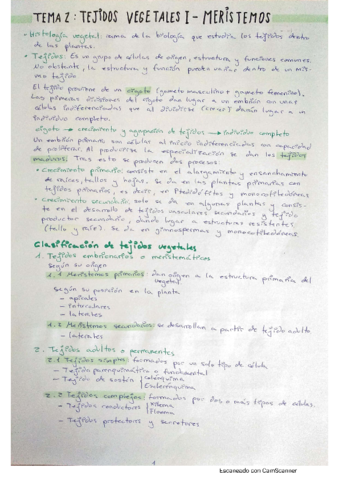 TEMA 2: TEJIDOS VEGETALES I - MERISTEMOS
- Histología vegetal: rama de la biología que estudia los tejidos dentro
de las plantas.
- Tejidos: Es un grupo de células de origen, estructura y funciones comunes.
No obstante, la estructura y función puede variar dentro de un mis-
mo tejido
El tejido proviene de un cigoto (gameto masculino + gameto femenino).
Las primeras divisiones del cigoto dan lugar a un embrión con unas
células indiferenciadas que al dividirse darán lugar a un
individuo completo.
cigoto → crecimiento y agrupación de tejidos → individuo completo
Un embrión primario son células al inicio indiferenciadas con capacidad
de proliferar. Al producirse la especialización se dan los tejidos
maduros. Tras esto se producen dos procesos:
- Crecimiento primario: consiste en el alargamiento y ensanchamiento
de raíces, tallos y hojas. Se da en las plantas primarias con
tejidos primarios, es decir, en Pteridofitas y monocotiledóneas.
- Crecimiento secundario: solo se da en algunas plantas y consis-
te en el desarrollo de tejidos vasculares secundarios y tejido
protector secundario, dando lugar a estructuras resistentes
(tallo y raíz). Se da en gimnospermas y monocotiledóneas
Clasificación de tejidos vegetales
1. Tejidos embrionarios o meristemáticos
Según su origen
1.1 Meristemos primarios: dan origen a la estructura primaria del
vegetal
Según su posición en la planta
- apicales
- intercalares
- laterales
1.2 Meristemos secundarios: se desarrollan a partir de tejido adulto
- laterales
2. Tejidos adultos o permanentes
2.1 Tejidos simples: formados por un solo tipo de célula
- Tejido parenquimático o fundamental
- Tejido de sostén Colénquima
Esclerénquima
2.2 Tejidos complejos: formados por dos o más tipos de células.
- Tejidos conductores Xilema
Floema
- Tejidos protectores y secretores
1
Escaneado con CamScanner